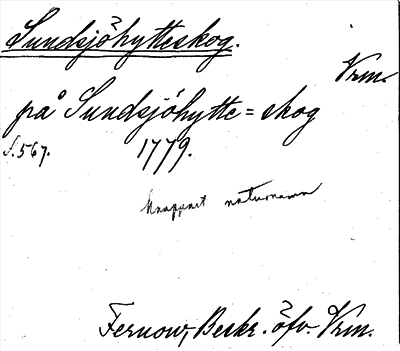 Sundsjöhytteskog.
Vrm.
på Sundsjöhytte=skog
s. 567. 1779.
knappast naturnamn
Fernow, Beskr. öfv. Vrm.